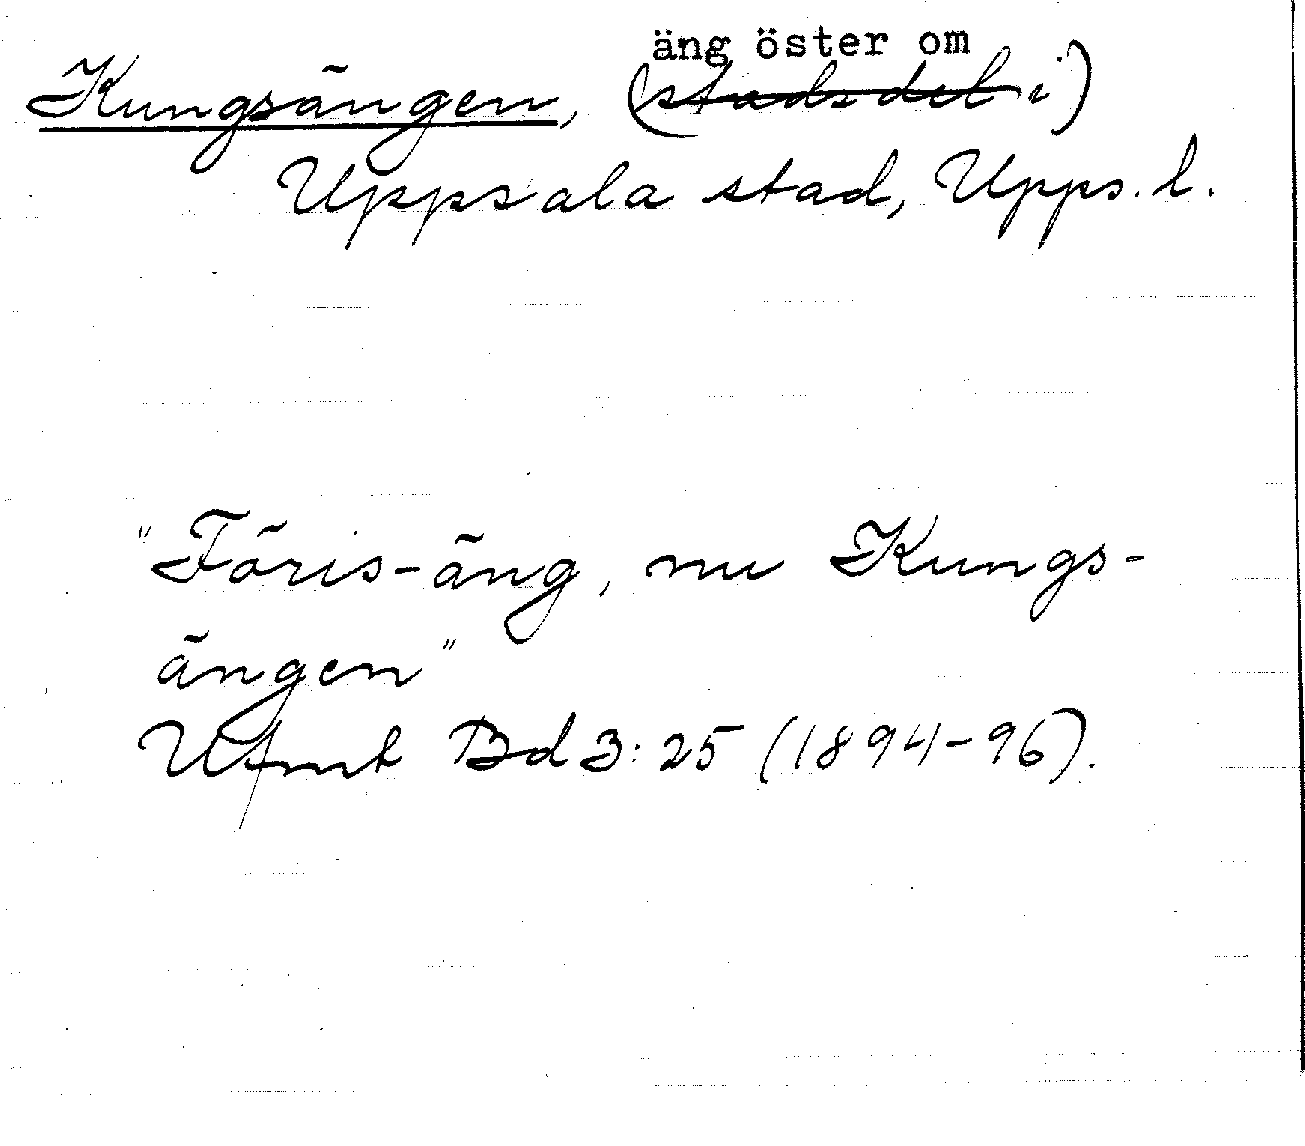 äng öster om
Kungsängen, (stadsdel i)
Uppsala stad, Upps. l.
"Föris-äng, nu Kungs-
ängen"
Ufmt Bd 3:25 (1894-96).